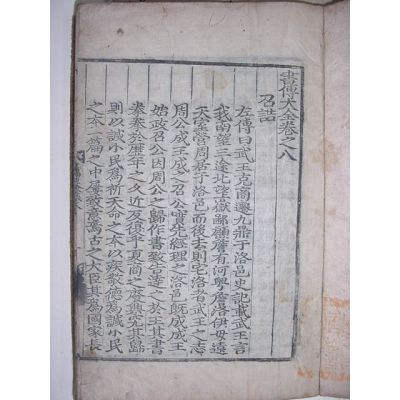 書傳大全卷之八
召誥
左傳曰武王克商遷九鼎于洛邑史記載武王言
我南望三途北望嶽鄙顧詹有河粤詹洛伊毋遠
天室營周居于洛邑而後去則宅洛者武王之志
周公成王成之召公實先經理之洛邑既成成王
始政召公因周公之歸作書致告達之於王其書
拳拳於歷年之久近反復乎夏商之廢興究其歸
則以諴小民爲祈天命之本以疾敬德爲諴小民
之本一篇之中屢致意焉古之大臣其爲國家長